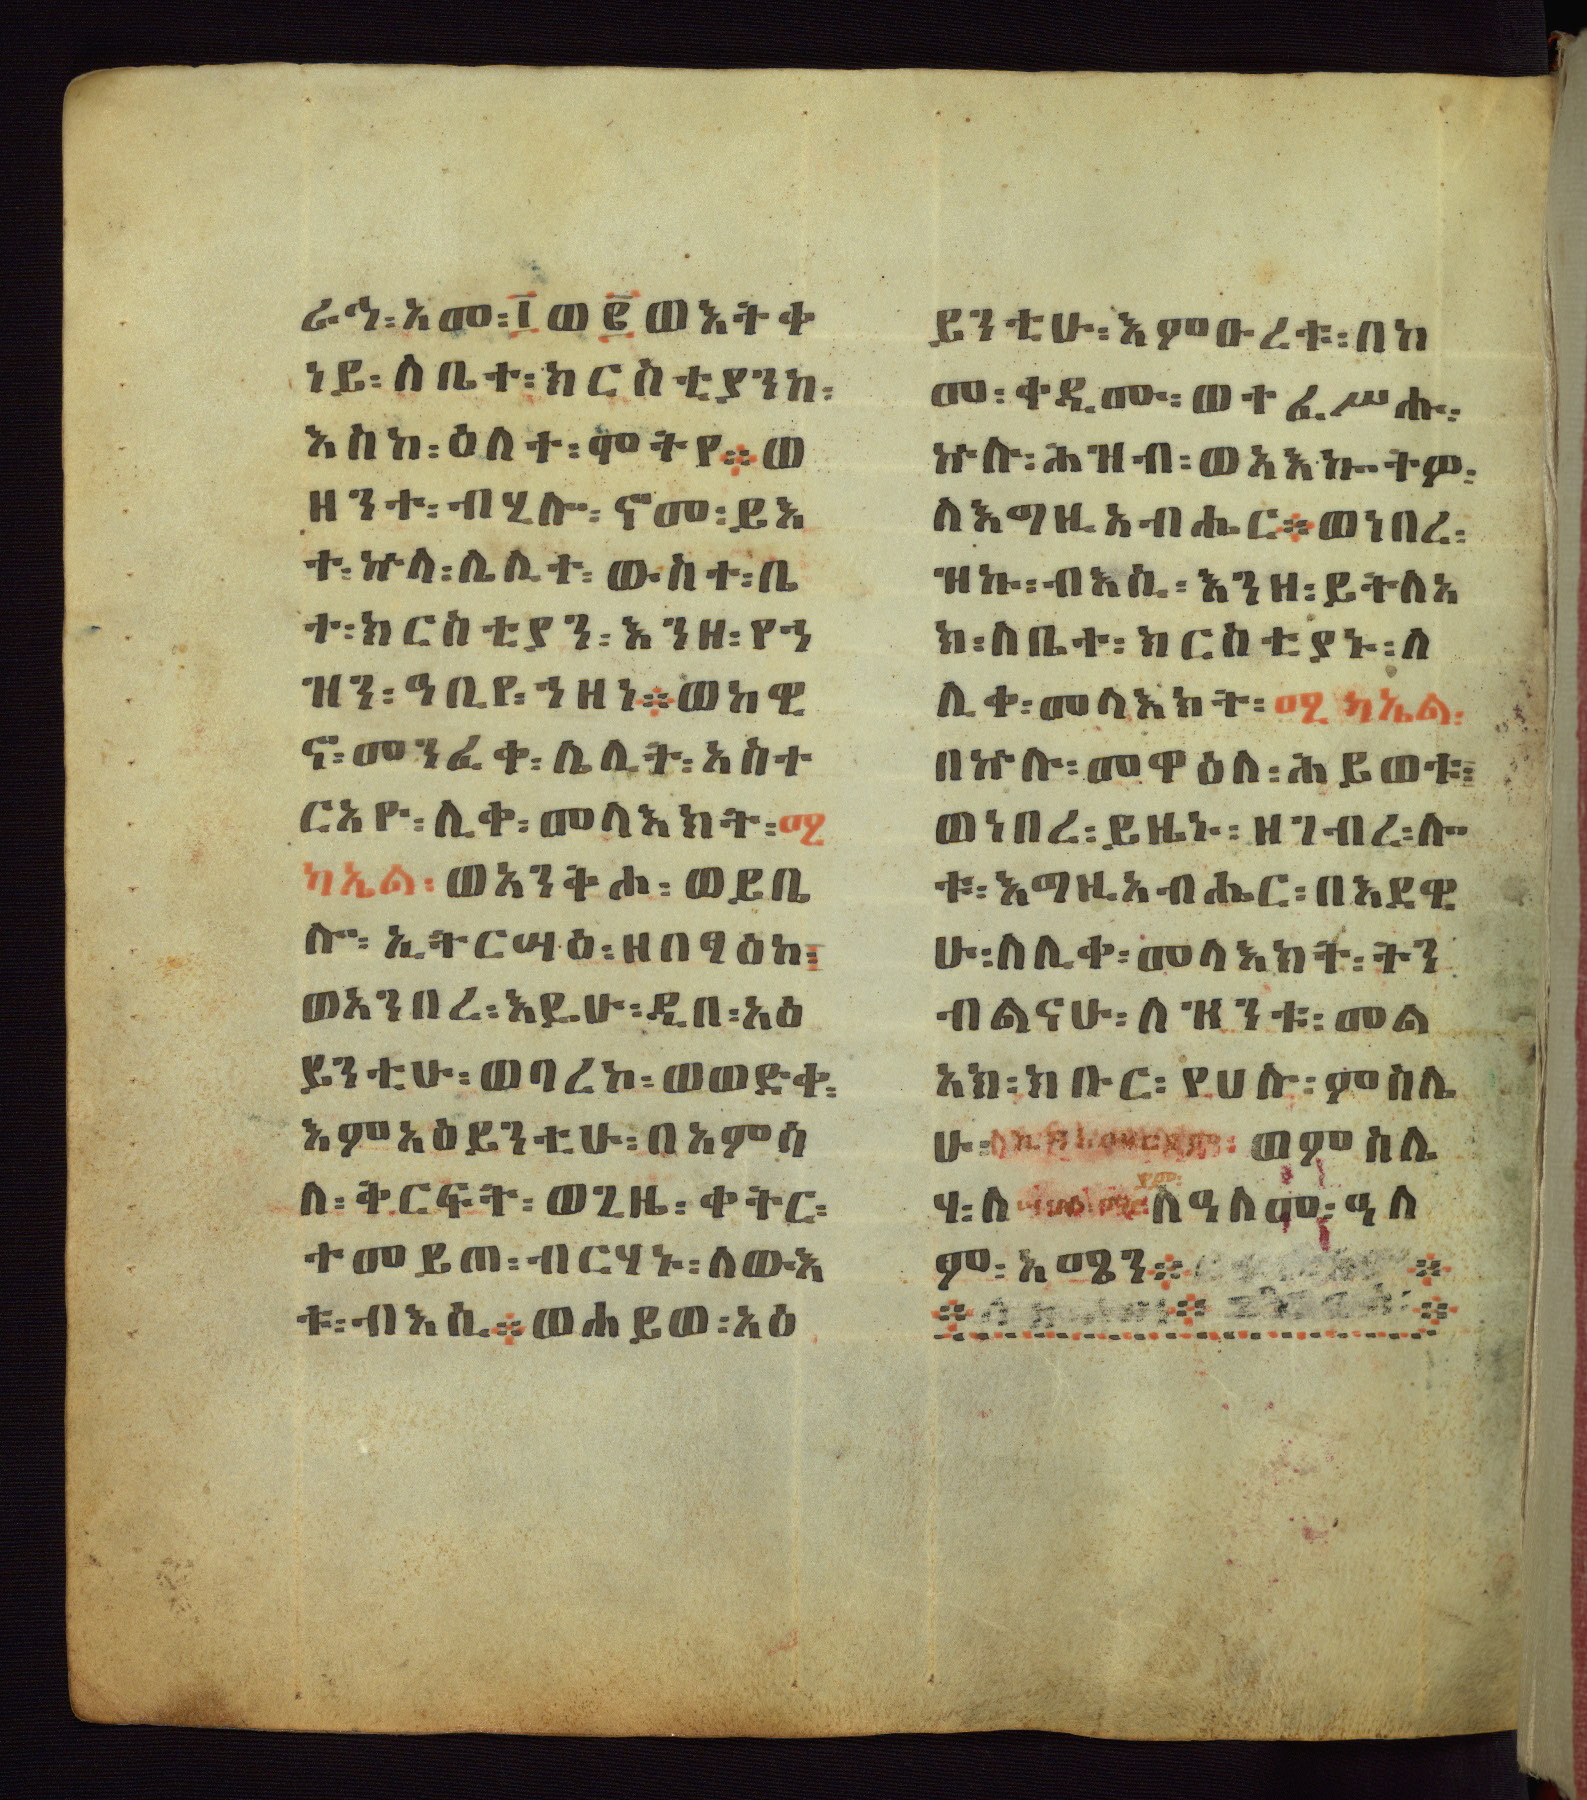 ራዓ፡አመ፡፲ወ፪ወእትቀ
ነይ፡ለቤተ፡ክርስቲያንከ፡
እስከ፡ዕለተ፡ሞትየ፨ወ
ዘንተ፡ብሂሎ፡ኖመ፡ይእ
ተ፡ኵላ፡ሌሊተ፡ውስተ፡ቤ
ተ፡ክርስቲያን፡እንዘ፡የኀ
ዝን፡ዓቢየ፡ኀዘነ፨ወከዊ
ኖ፡መንፈቀ፡ሌሊት፡አስተ
ርአዮ፡ሊቀ፡መላእክት፡ሚ
ካኤል፡ወአንቅሖ፡ወይቤ
ሎ፡ኢትርሣዕ፡ዘበፃዕከ፡
ወአንበረ፡እዴሁ፡ዲበ፡አዕ
ይንቲሁ፡ወባረከ፡ወወድቀ፡
እምአዕይንቲሁ፡በአምሳ
ለ፡ቅርፍት፡ወጊዜ፡ቀትር፡
ተመይጠ፡ብርሃኑ፡ለውእ
ቱ፡ብእሲ፨ወሐይወ፡አዕ
ይንቲሁ፡እምዑረቱ፡በከ
መ፡ቀዲሙ፡ወተፈሥሑ፡
ኵሉ፡ሕዝብ፡ወአእኰትዎ፡
ለእግዚአብሔር፨ወነበረ፡
ዝኩ፡ብእሲ፡እንዘ፡ይትለአ
ክ፡ለቤተ፡ክርስቲያኑ፡ለ
ሊቀ፡መላእክት፡ሚካኤል፡
በኵሉ፡መዋዕለ፡ሕይወቱ፡
ወነበረ፡ይዜኑ፡ዘገብረ፡ሎ
ቱ፡እግዚአብሔር፡በእደዊ
ሁ፡ለሊቀ፡መላእክት፡ትን
ብልናሁ፡ለዝንቱ፡መል
አክ፡ክቡር፡የሀሉ፡ምስሌ
ሁ፡ወምስሌ
ሃ፡ለ ለዓለመ፡ዓለ
ም፡አሜን፨